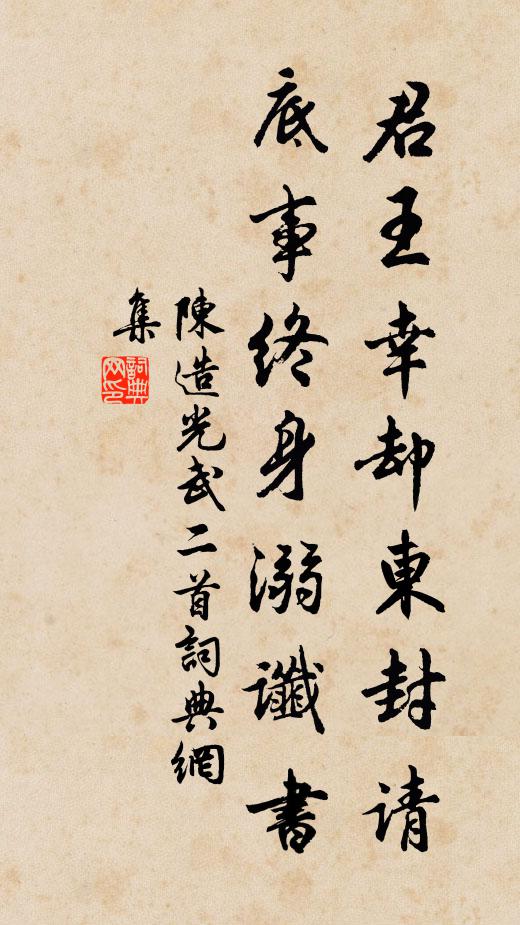 君王幸却東封请
底事终身溺讖書
陳造光武二首詞典網
集
詞典网印